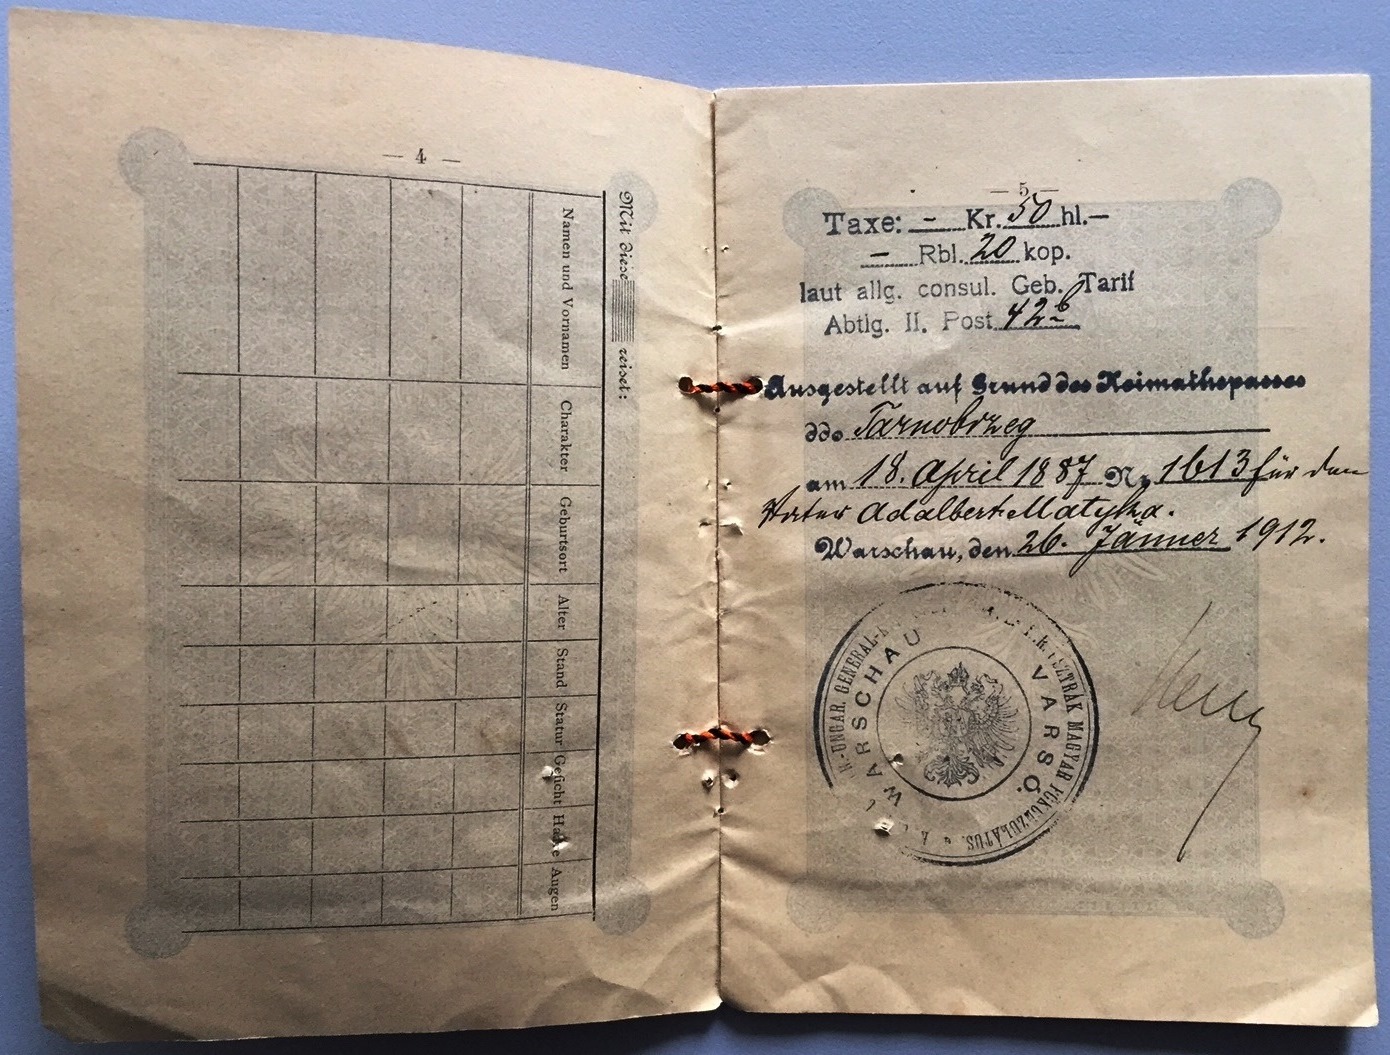 — 4 —
Mit diese reiset:
Namen und Vornamen
Charakter
Geburtsort
Alter
Stand
Statur
Gesicht
Haare
Augen
— 5 —
Taxe: - Kr. 50 hl.—
- Rbl. 20 kop.
laut allg. consul. Geb. Tarif
Abtlg. II. Post 42b
Ausgestellt auf Grund des Heimathspasses
ddo Tarnobrzeg
am 18. April 1887 Nr. 1613 für den
Vater Adalbert Matyka.
Warschau, den 26. Jänner 1912.
K.-UNGAR. GENERAL-
WARSCHAU
OSZTRÁK MAGYAR FŐKONZULÁTUS.
VARSÓ.